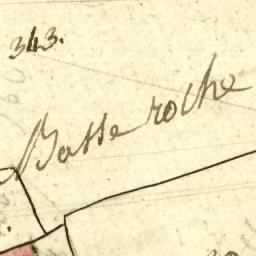 343.
Basse roche